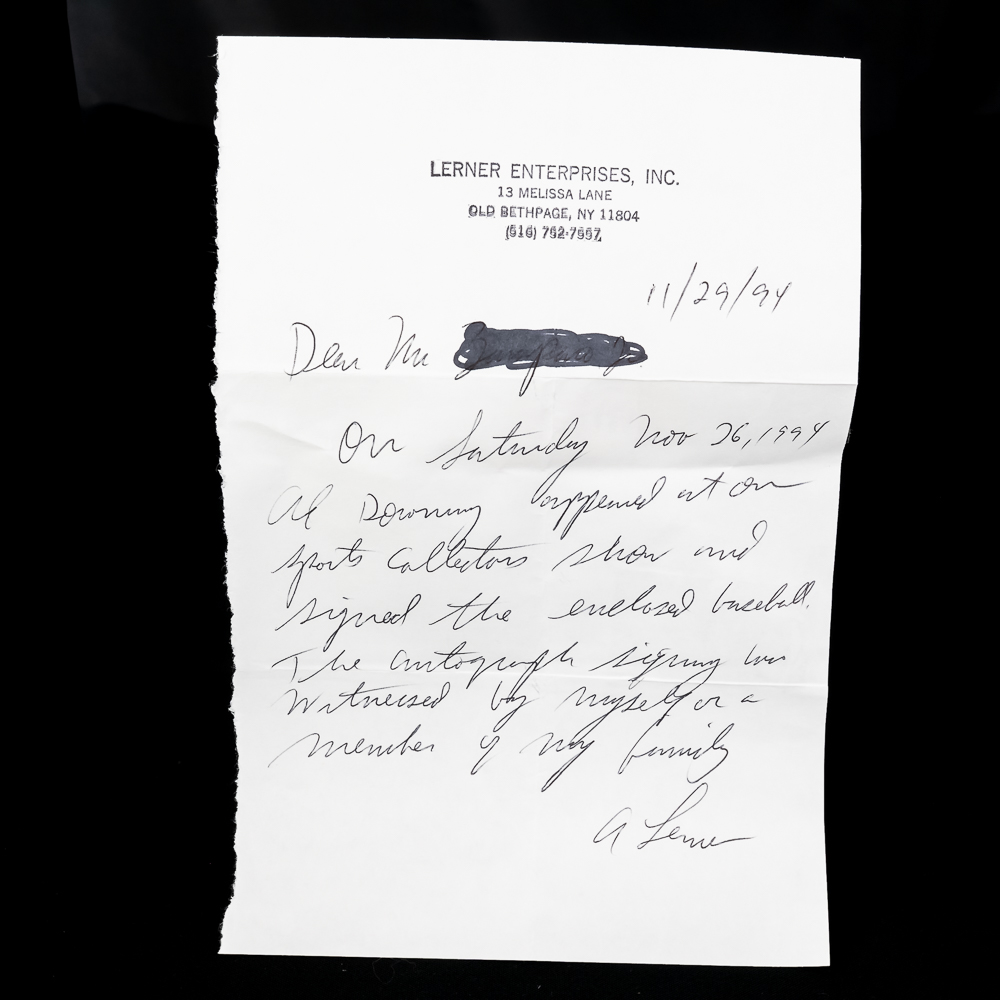 LERNER ENTERPRISES, INC.
13 MELISSA LANE
OLD BETHPAGE, NY 11804
(516) 752-7557
11/29/94
Dear Mr
On Saturday Nov 26, 1994
Al Downing appeared at our
sports collectors show and
signed the enclosed baseball.
The autograph signing was
witnessed by myself or a
member of my family
A Lerner